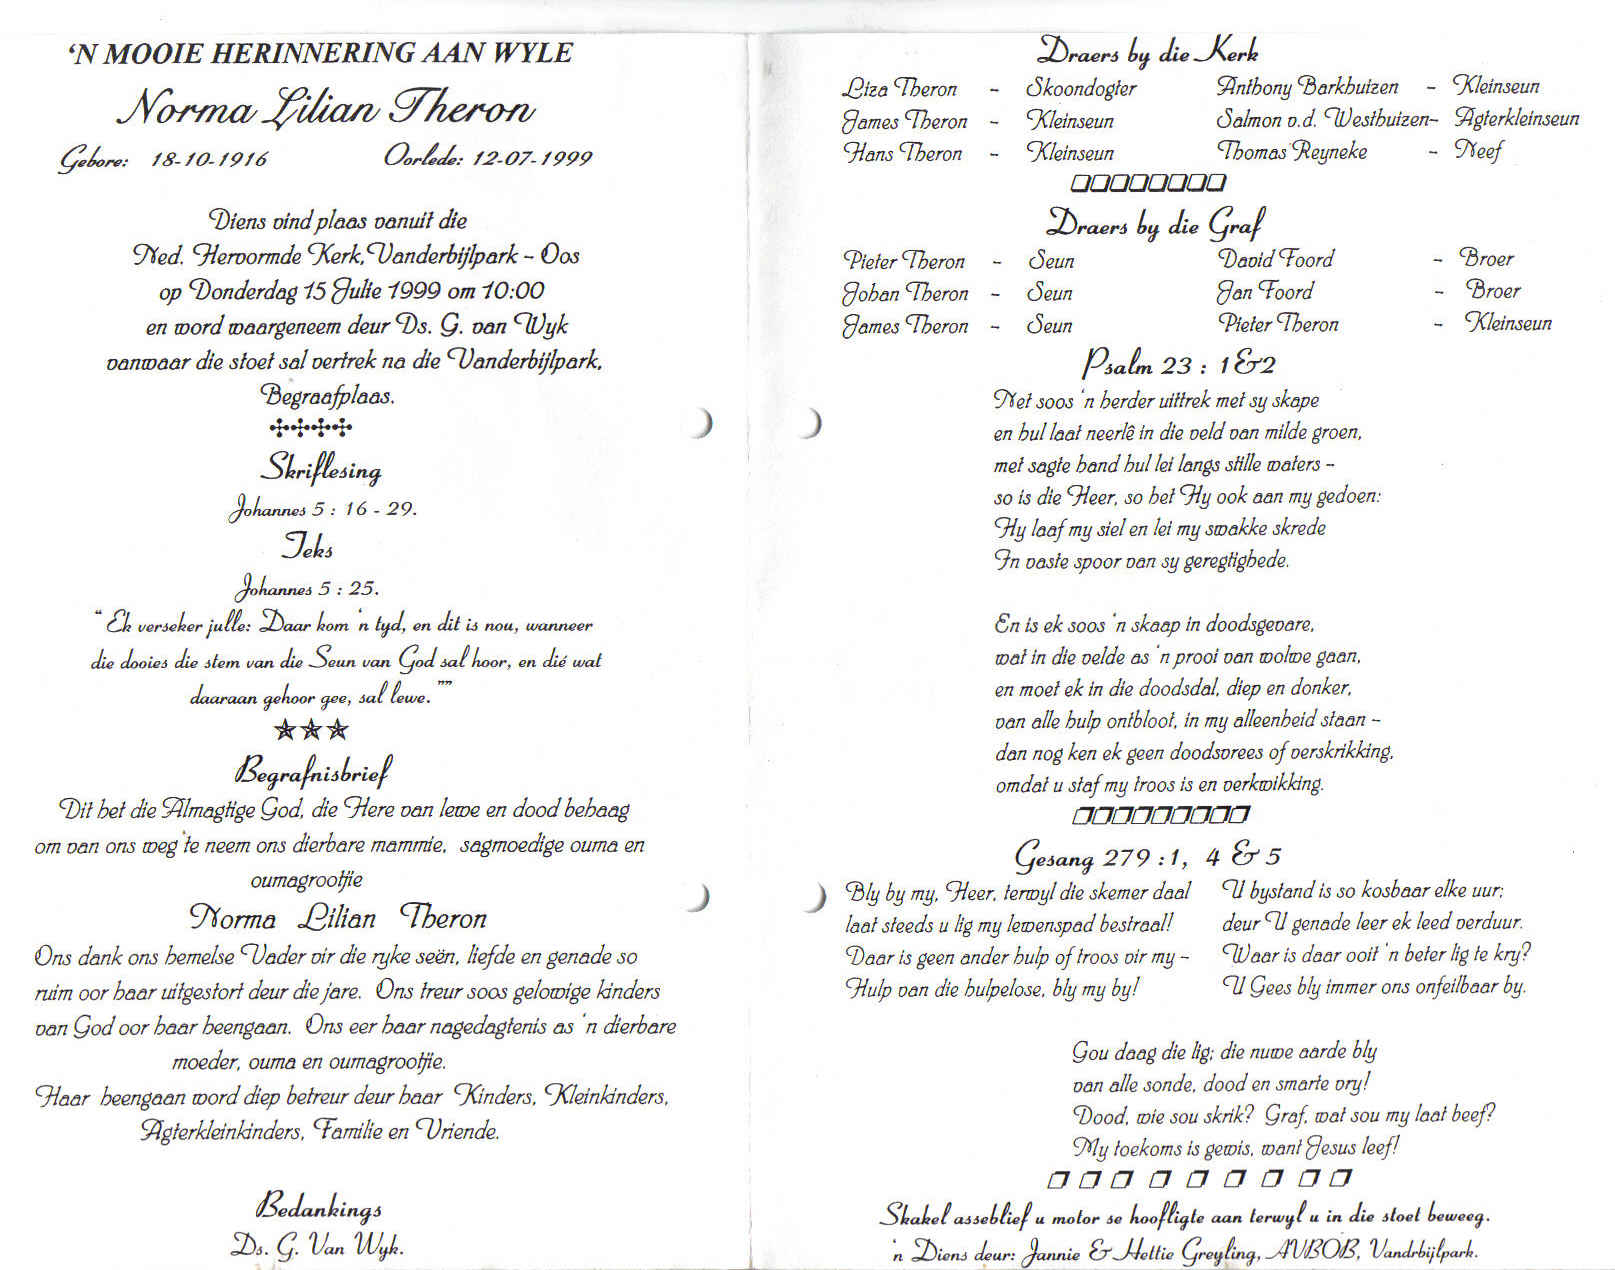 ‘N MOOIE HERINNERING AAN WYLE
Norma Lilian Theron
Gebore: 18-10-1916 Oorlede: 12-07-1999
Diens vind plaas vanuit die
Ned. Hervormde Kerk, Vanderbijlpark - Oos
op Donderdag 15 Julie 1999 om 10:00
en word waargeneem deur Ds. G. van Wyk
vanwaar die stoet sal vertrek na die Vanderbijlpark,
Begraafplaas.
Skriflesing
Johannes 5 : 16 - 29.
Teks
Johannes 5 : 25.
“ Ek verseker julle: Daar kom ‘n tyd, en dit is nou, wanneer
die dooies die stem van die Seun van God sal hoor, en dié wat
daaraan gehoor gee, sal lewe.””
Begrafnisbrief
Dit het die Almagtige God, die Here van lewe en dood behaag
om van ons weg te neem ons dierbare mammie, sagmoedige ouma en
oumagrootjie
Norma Lilian Theron
Ons dank ons hemelse Vader vir die ryke seën, liefde en genade so
ruim oor haar uitgestort deur die jare. Ons treur soos gelowige kinders
van God oor haar heengaan. Ons eer haar nagedagtenis as ‘n dierbare
moeder, ouma en oumagrootjie.
Haar heengaan word diep betreur deur haar Kinders, Kleinkinders,
Agterkleinkinders, Familie en Vriende.
Bedankings
Ds. G. Van Wyk.
Draers by die Kerk
Liza Theron - Skoondogter Anthony Barkhuizen - Kleinseun
James Theron - Kleinseun Salmon v.d. Westhuizen- Agterkleinseun
Hans Theron - Kleinseun Thomas Reyneke - Neef
Draers by die Graf
Pieter Theron - Seun David Foord - Broer
Johan Theron - Seun Jan Foord - Broer
James Theron - Seun Pieter Theron - Kleinseun
Psalm 23 : 1&2
Net soos ‘n herder uittrek met sy skape
en hul laat neerlê in die veld van milde groen,
met sagte hand hul lei langs stille waters -
so is die Heer, so het Hy ook aan my gedoen:
Hy laaf my siel en lei my swakke skrede
In vaste spoor van sy geregtighede.
En is ek soos ‘n skaap in doodsgevare,
wat in die velde as ‘n prooi van wolwe gaan,
en moet ek in die doodsdal, diep en donker,
van alle hulp ontbloot, in my alleenheid staan -
dan nog ken ek geen doodsvrees of verskrikking,
omdat u staf my troos is en verkwikking.
Gesang 279 :1, 4 & 5
Bly by my, Heer, terwyl die skemer daal
laat steeds u lig my lewenspad bestraal!
Daar is geen ander hulp of troos vir my -
Hulp van die hulpelose, bly my by!
U bystand is so kosbaar elke uur;
deur U genade leer ek leed verduur.
Waar is daar ooit ‘n beter lig te kry?
U Gees bly immer ons onfeilbaar by.
Gou daag die lig; die nuwe aarde bly
van alle sonde, dood en smarte vry!
Dood, wie sou skrik? Graf, wat sou my laat beef?
My toekoms is gewis, want Jesus leef!
Skakel asseblief u motor se hoofligte aan terwyl u in die stoet beweeg.
‘n Diens deur: Jannie & Hettie Greyling, AVBOB, Vandrbijlpark.